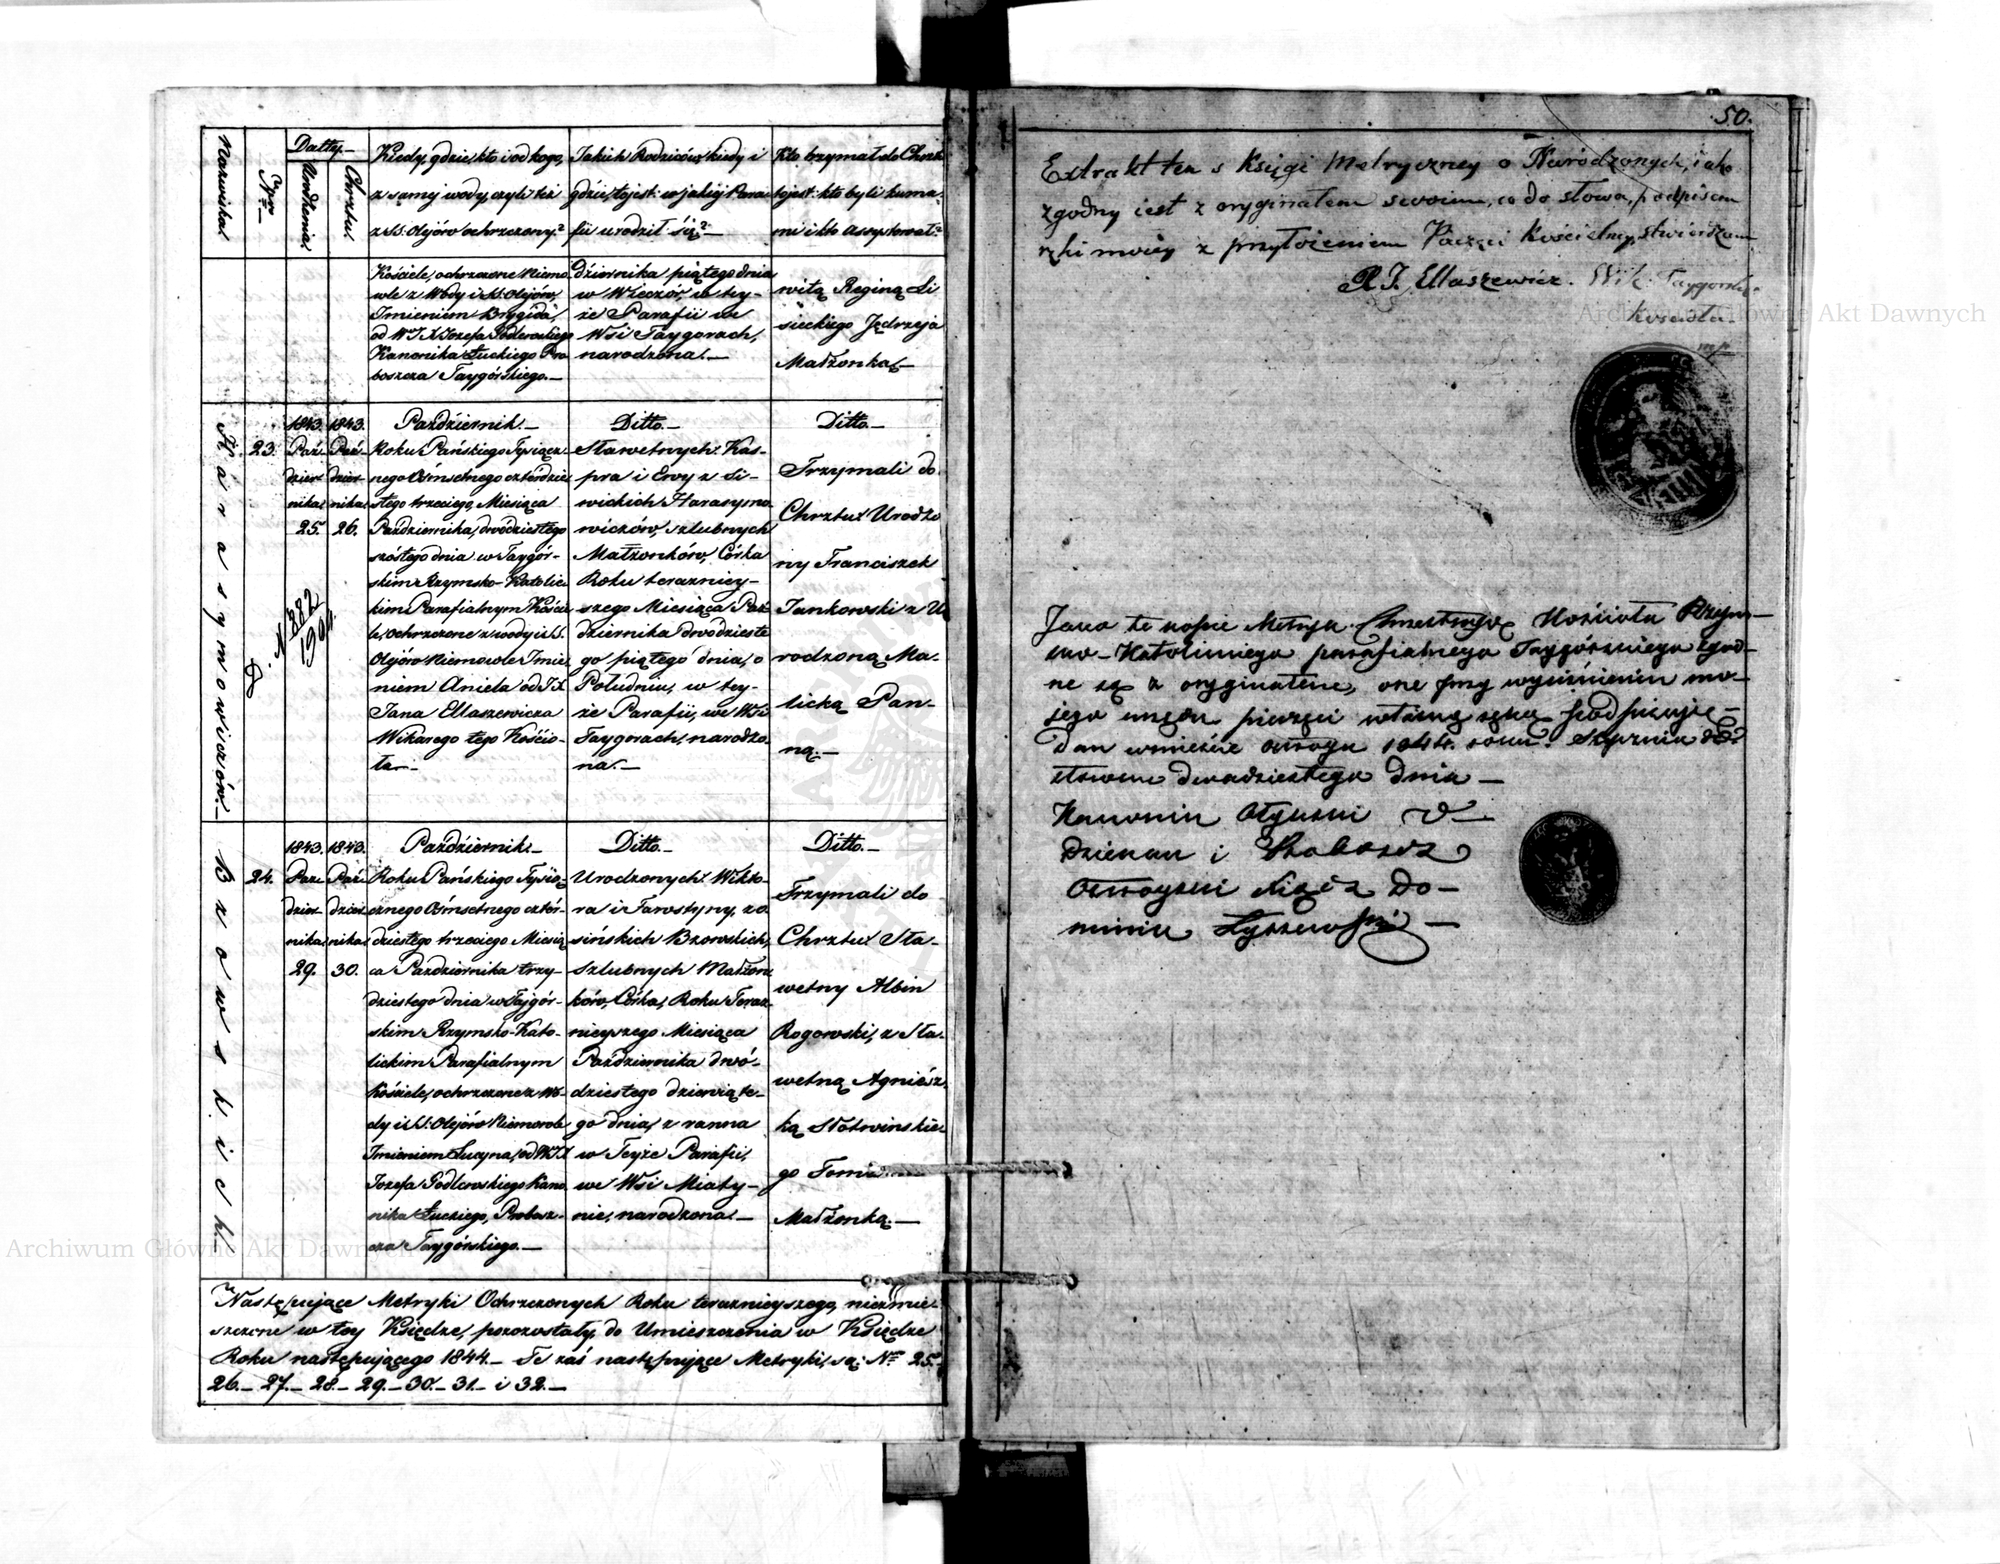 Nazwiska.
Nro
Datty.
Urodzenia.
Chrztu.
Kiedy, gdzie, kto i od kogo,
z samy wody, czyli też
z SS. Olejów ochrzczony?
Jakich Rodziców, kiedy i
gdzie, to jest: w jakiéj Para-
fii urodził się?
Kto trzymał do Chrztu
to jest: kto byli kuma-
mi i kto assystował?
Kościele, ochrzczone Niemo-
wle z Wody i SS. Olejów,
Imieniem Brygida,
od WJX Jozefa Podlewskiego
Kanonika Łuckiego Pro-
boszcza Taygórskiego.
dziernika piątego dnia
w Wieczór, w tey-
że Parafii we
Wsi Taygorach,
narodzona.
witą Reginą Li
sieckiego Jędrzeja
Małżonką.
Harasymowiczów.
23.
1843.
Paź-
dzier-
nika
25.
1843.
Paź-
dzier-
nika
26.
N. 882
1904.
Październik.
Roku Pańskiego Tysiącz-
nego Ośmsetnego czterdzie-
stego trzeciego, Miesiąca
Października, dwódziestego
szóstego dnia w Taygór-
skim Rzymsko-Katolic-
kim Parafialnym Kości-
le, ochrzczone z wody i SS.
Olejów Niemowle Imie-
niem Aniela od JX
Jana Ellaszewicza
Wikarego tego Kościo-
ła.
Ditto.
Sławetnych Kas-
pra i Ewy z Li-
wickich Harasymo-
wiczów, szlubnych
Małżonków, Córka
Roku terazniey-
szego Miesiąca Paź-
dziernika dwódzieste-
go piątego dnia, o
Południu, w tey-
że Parafii, we Wsi
Taygorach, narodzo-
na.
Ditto.
Trzymali do
Chrztu Urodzo
ny Franciszek
Jankowski z U
rodzoną Ma-
licką Pan-
ną.
Bzowskich.
24.
1843.
Paź-
dzier-
nika
29.
1843.
Paź-
dzier-
nika
30.
Październik.
Roku Pańskiego Tysią-
cznego Ośmsetnego cztér-
dziestego trzeciego Miesią-
ca Października trzy-
dziestego dnia w Tajgór-
skim Rzymsko-Kato-
lickim Parafialnym
Kościele, ochrzczone z Wo-
dy i SS. Olejów Niemowle
Imieniem Lucyna, od WJX
Jozefa Podlewskiego Kano-
nika Łuckiego, Probosz-
cza Taygórskiego.
Ditto.
Urodzonych Wikto-
ra i Faustyny, zo
sińskich Bzowskich,
szlubnych Małżon-
ków, Córka, Roku Teraz-
nieyszego Miesiąca
Października dwó-
dziestego dziewiąte-
go dnia, z ranna
w Teyże Parafii,
we Wsi Miaty-
nie, narodzona.
Ditto.
Trzymali do
Chrztu Sła-
wetny Albin
Rogowski, z Sła-
wetną Agniesz-
ką Słotwinskie-
go Toma
Małżonką.
Następujące Metryki Ochrzczonych Roku teraznieyszego, niezmie-
szczone w tey Księdze, pozostały, do Umieszczenia w Księdze
Roku następującego 1844. Te zaś następujące Metryki, są: Nro 25.
26.– 27.– 28.– 29.– 30.– 31.– i 32.–
50.
Extrakt ten z Księgi Metryczney o Narodzonych, iako
zgodny iest z oryginałem swoim, co do słowa, podpisem
ręki moiey z przyłożeniem Pieczęci Kościelney, stwierdzam
X J. Ellaszewicz. Wik. Taygorski.
Kościoła
mp
Jako te kopie Metryk Chrzestnych Kościoła Rzym-
sko-Katolickiego parafialnego Taygórskiego zgod-
ne są z oryginałem, one przy wyciśnieniu mo-
jego urzędu pieczęci własną ręką podpisuję
Dan w mieście Ostrogu 1844. roku. Stycznia
dwadziestego dnia
Kanonik Ołycki
Dziekan i Proboszcz
Ostrogski Xiądz Do-
minik
Archiwum Główne Akt Dawnych
Archiwum Główne Akt Dawnych